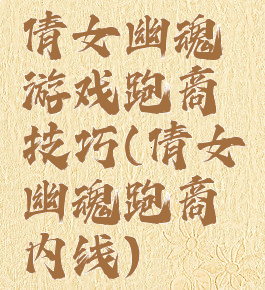 倩女幽魂
游戏跑商
技巧(倩女
幽魂跑商
内线)